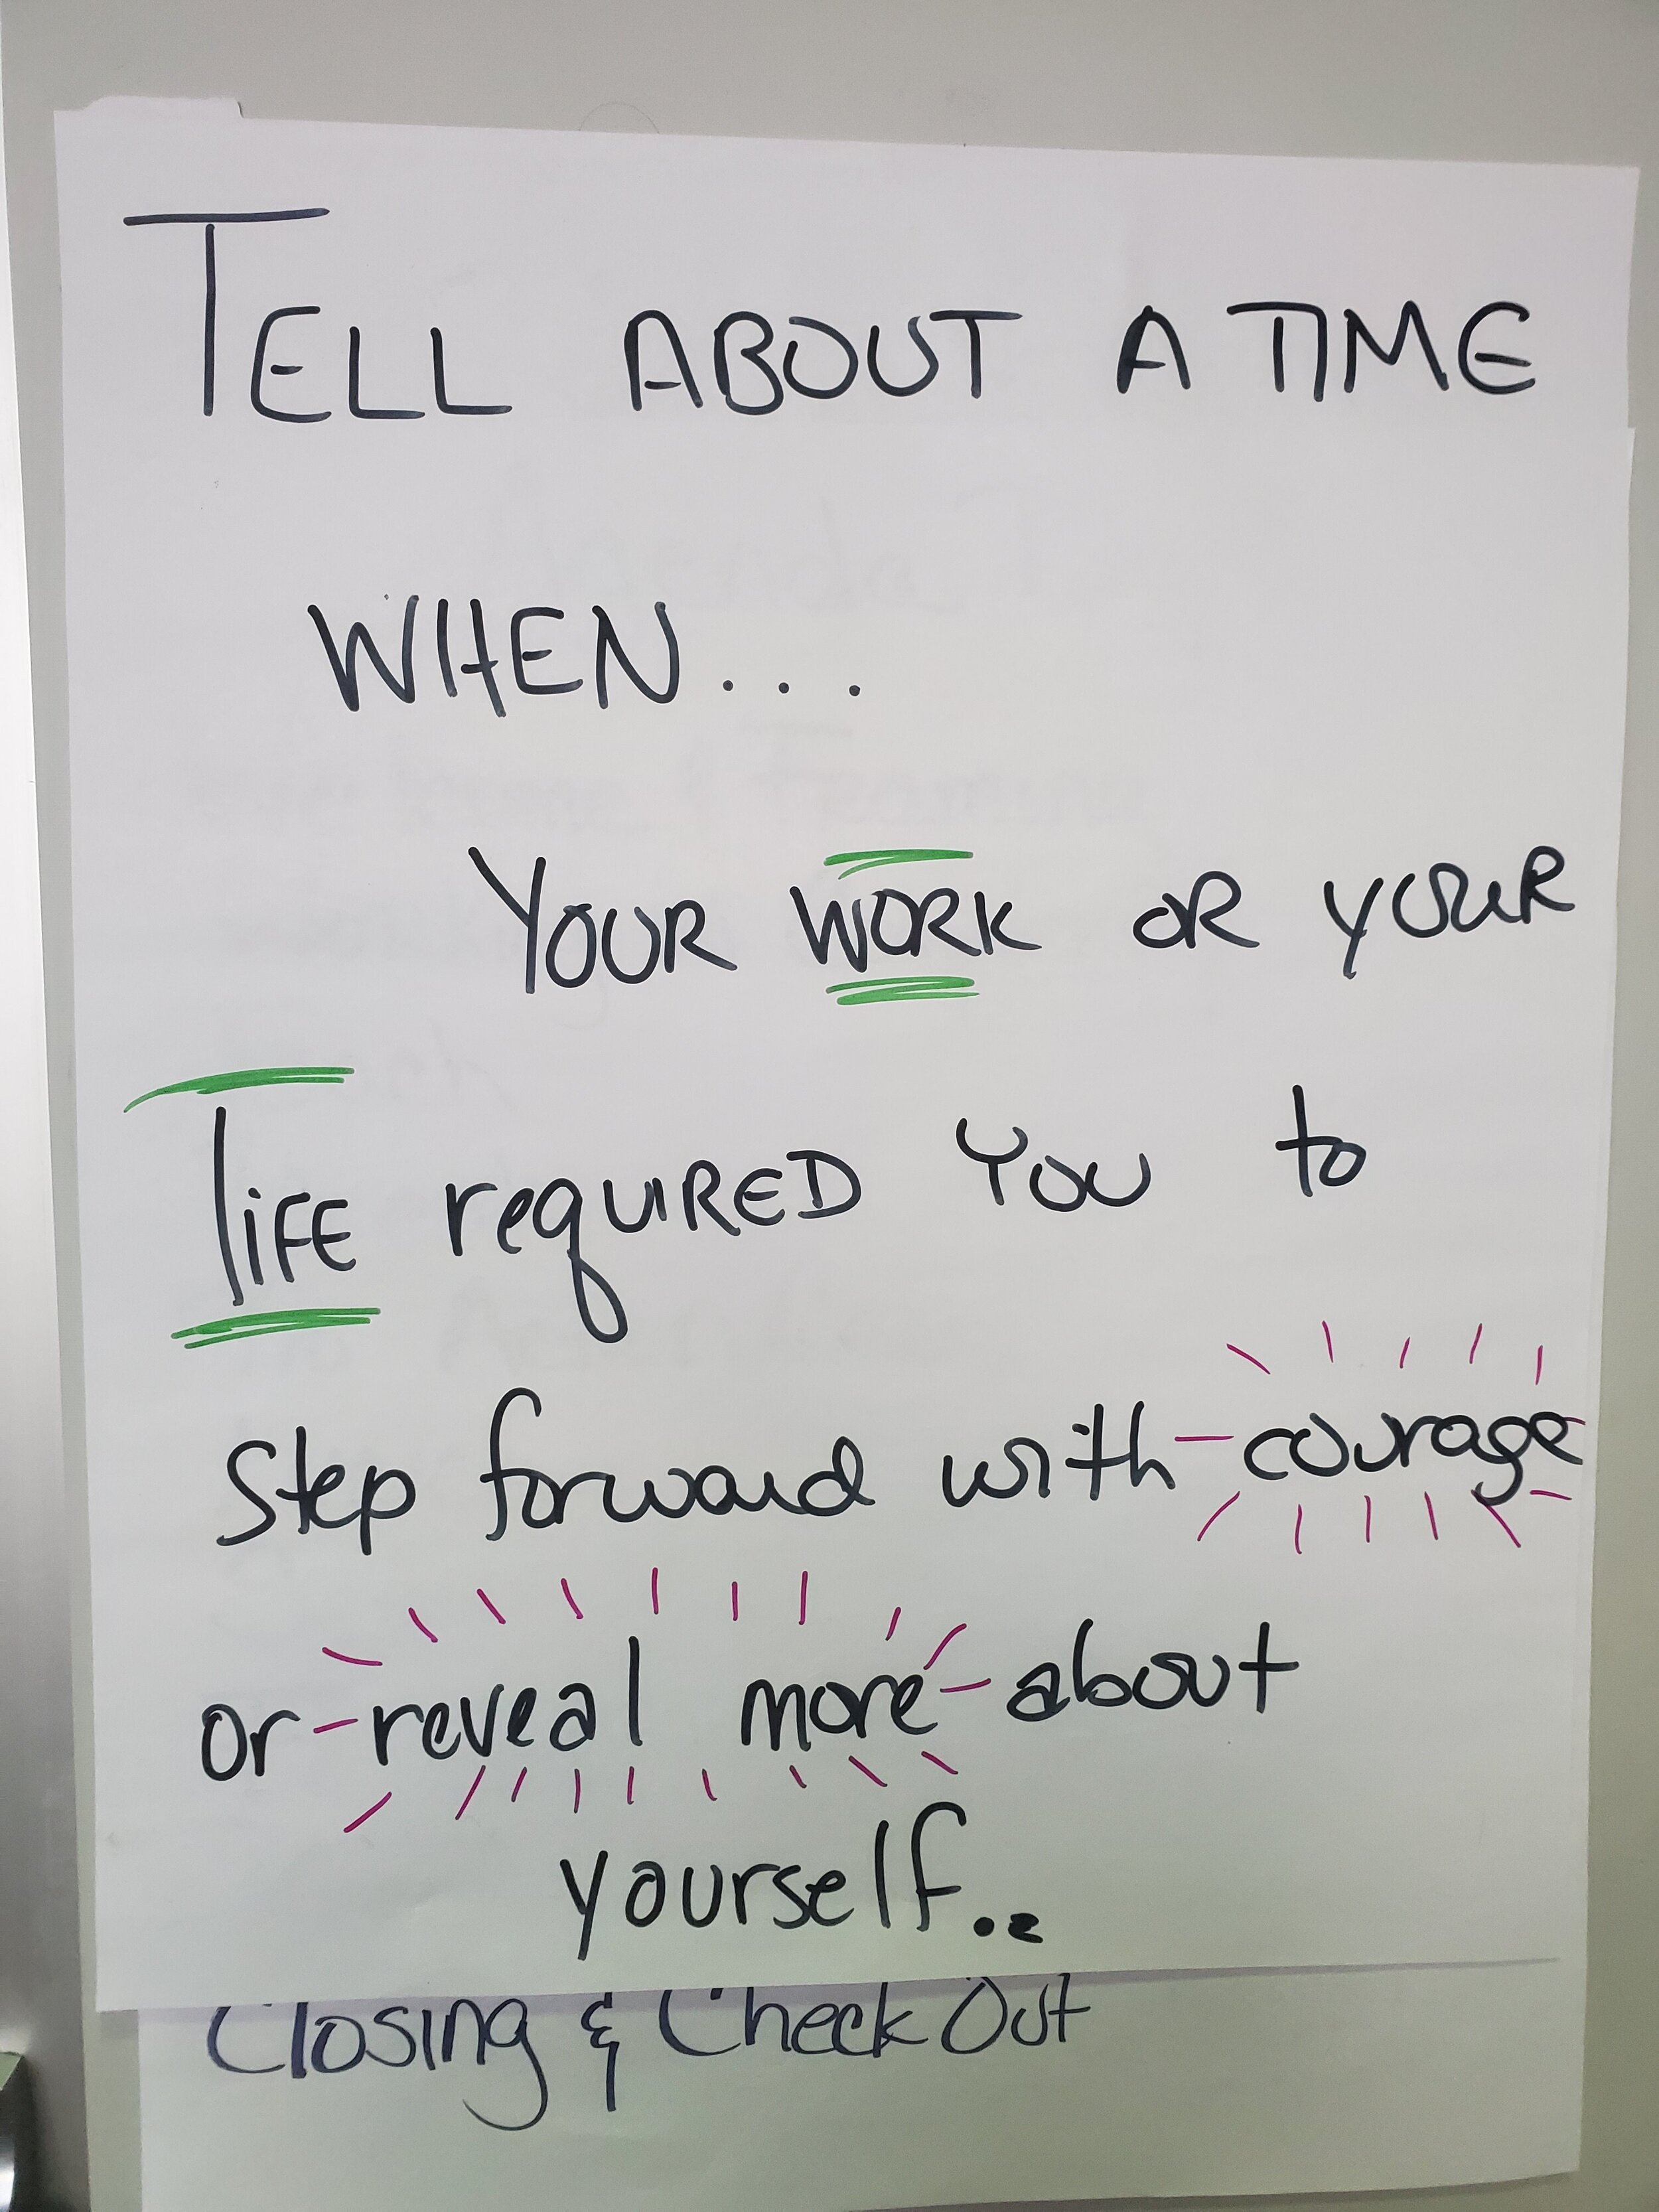 TELL ABOUT A TIME
WHEN...
YOUR WORK OR YOUR
LIFE required YOU to
Step forward with courage
or reveal more about
yourself..
Closing & Check Out